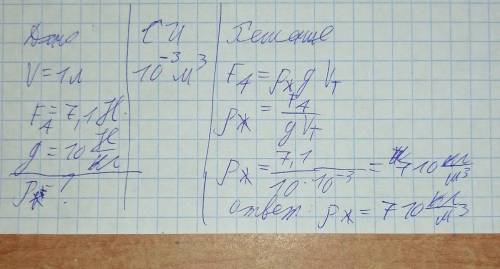 Дано
V = 1л
F_A = 7,1 Н.
g = 10 Н/кг
ρж = ?
СИ
10⁻³ м³
Решение
F_A = ρж g Vт
ρж = F_A / g Vт
ρж = 7,1 / 10·10⁻³ = 710 кг/м³
ответ: ρж = 710 кг/м³